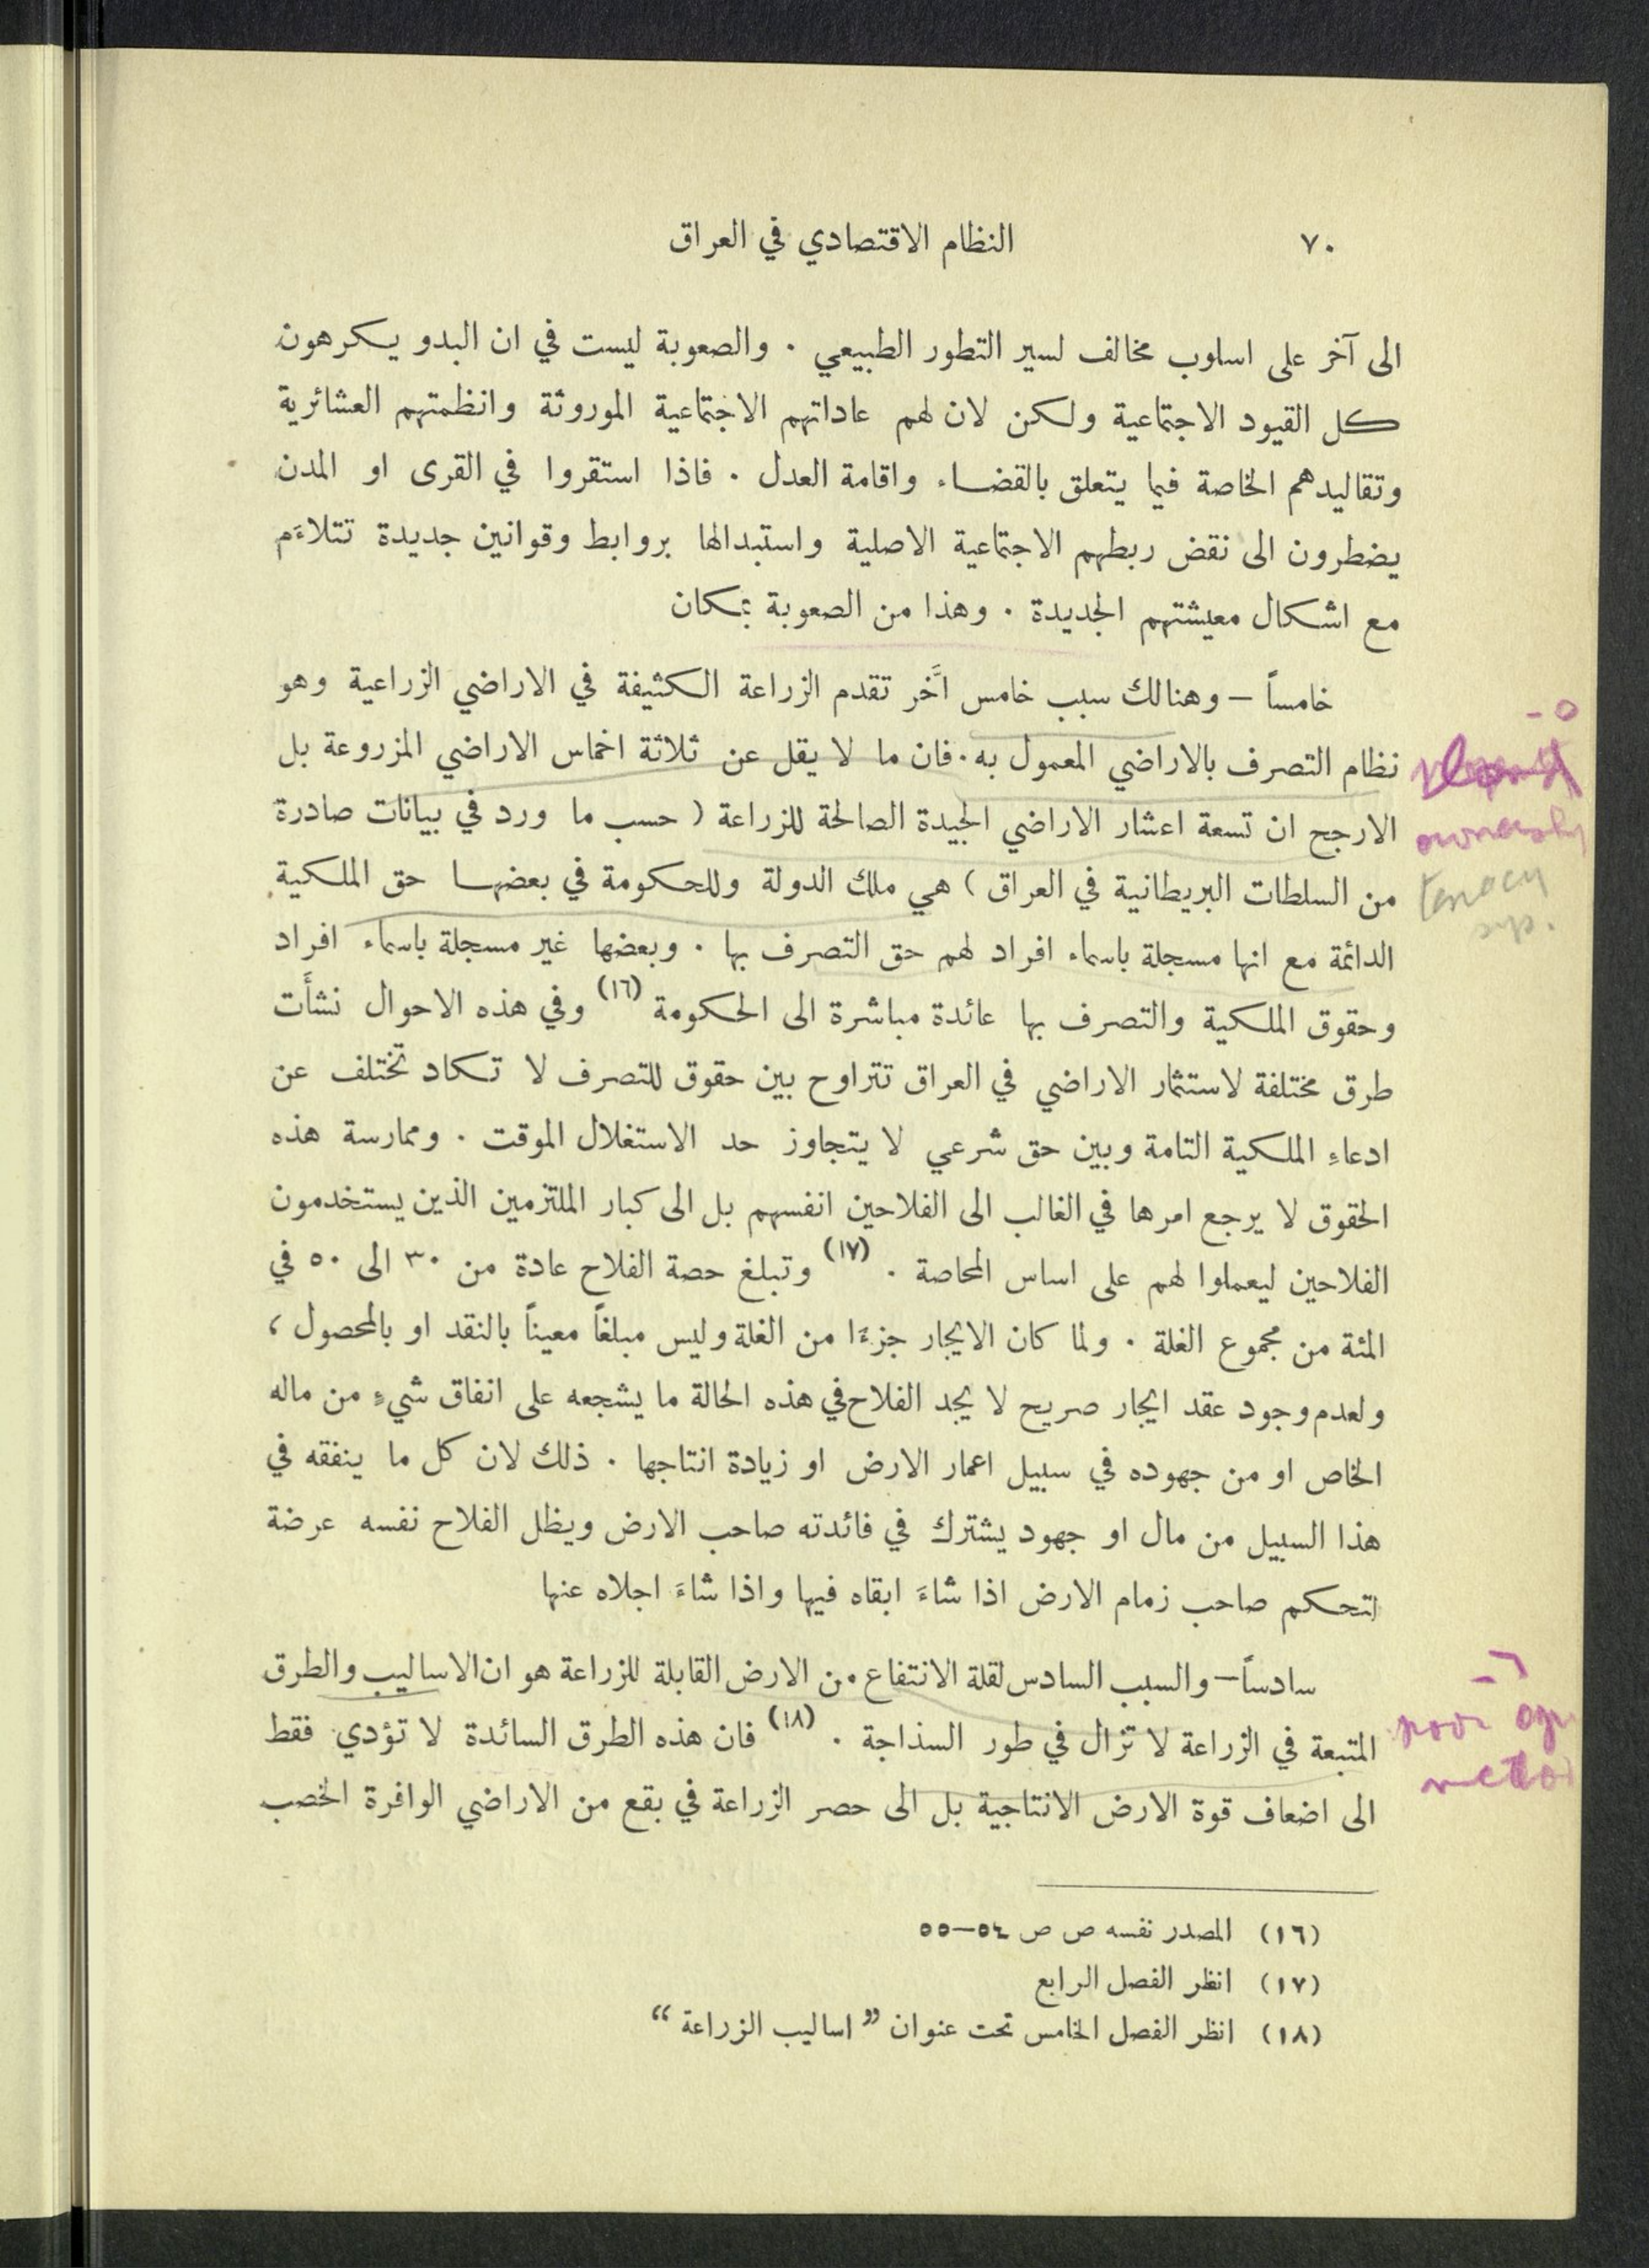 ٧٠
النظام الاقتصادي في العراق
الى آخر على اسلوب مخالف لسير التطور الطبيعي . والصعوبة ليست في ان البدو يكرهون
كل القيود الاجتماعية ولكن لان لهم عاداتهم الاجتماعية الموروثة وانظمتهم العشائرية
وتقاليدهم الخاصة فيما يتعلق بالقضاء واقامة العدل . فاذا استقروا في القرى او المدن
يضطرون الى نقض ربطهم الاجتماعية الاصلية واستبدالها بروابط وقوانين جديدة تتلاءَم
مع اشكال معيشتهم الجديدة . وهذا من الصعوبة بمكان
خامساً — وهنالك سبب خامس اَّخر تقدم الزراعة الكثيفة في الاراضي الزراعية وهو
نظام التصرف بالاراضي المعمول به . فان ما لا يقل عن ثلاثة اخماس الاراضي المزروعة بل
الارجح ان تسعة اعشار الاراضي الجيدة الصالحة للزراعة ( حسب ما ورد في بيانات صادرة
من السلطات البريطانية في العراق ) هي ملك الدولة وللحكومة في بعضها حق الملكية
الدائمة مع انها مسجلة باسماء افراد لهم حق التصرف بها . وبعضها غير مسجلة باسماء افراد
وحقوق الملكية والتصرف بها عائدة مباشرة الى الحكومة (١٦) وفي هذه الاحوال نشأَت
طرق مختلفة لاستثمار الاراضي في العراق تتراوح بين حقوق للتصرف لا تكاد تختلف عن
ادعاءِ الملكية التامة وبين حق شرعي لا يتجاوز حد الاستغلال الموقت . وممارسة هذه
الحقوق لا يرجع امرها في الغالب الى الفلاحين انفسهم بل الى كبار الملتزمين الذين يستخدمون
الفلاحين ليعملوا لهم على اساس المحاصة . (١٧) وتبلغ حصة الفلاح عادة من ٣٠ الى ٥٠ في
المئة من مجموع الغلة . ولما كان الايجار جزءًا من الغلة وليس مبلغاً معيناً بالنقد او بالمحصول ،
ولعدم وجود عقد ايجار صريح لا يجد الفلاح في هذه الحالة ما يشجعه على انفاق شيءٍ من ماله
الخاص او من جهوده في سبيل اعمار الارض او زيادة انتاجها . ذلك لان كل ما ينفقه في
هذا السبيل من مال او جهود يشترك في فائدته صاحب الارض ويظل الفلاح نفسه عرضة
لتحكم صاحب زمام الارض اذا شاءَ ابقاه فيها واذا شاءَ اجلاه عنها
سادساً — والسبب السادس لقلة الانتفاع من الارض القابلة للزراعة هو ان الاساليب والطرق
المتبعة في الزراعة لا تزال في طور السذاجة . (١٨) فان هذه الطرق السائدة لا تؤدي فقط
الى اضعاف قوة الارض الانتاجية بل الى حصر الزراعة في بقع من الاراضي الوافرة الخصب
(١٦) المصدر نفسه ص ص ٥٤—٥٥
(١٧) انظر الفصل الرابع
(١٨) انظر الفصل الخامس تحت عنوان ” اساليب الزراعة “
٥ -
٦ -
poor